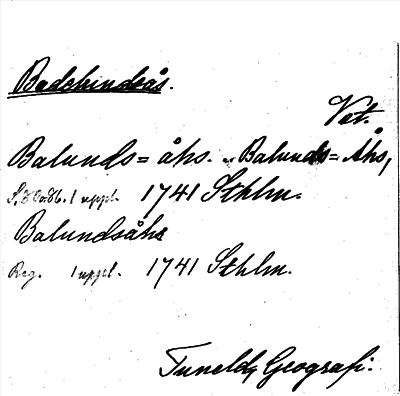 Badelundsås.
Vat.
Balunds=åhs. „Balunds=Åhs,
1 uppl. 1741 Sthlm.
Balundsåhs
Reg. 1 uppl. 1741 Sthlm.
Tunelds Geografi.